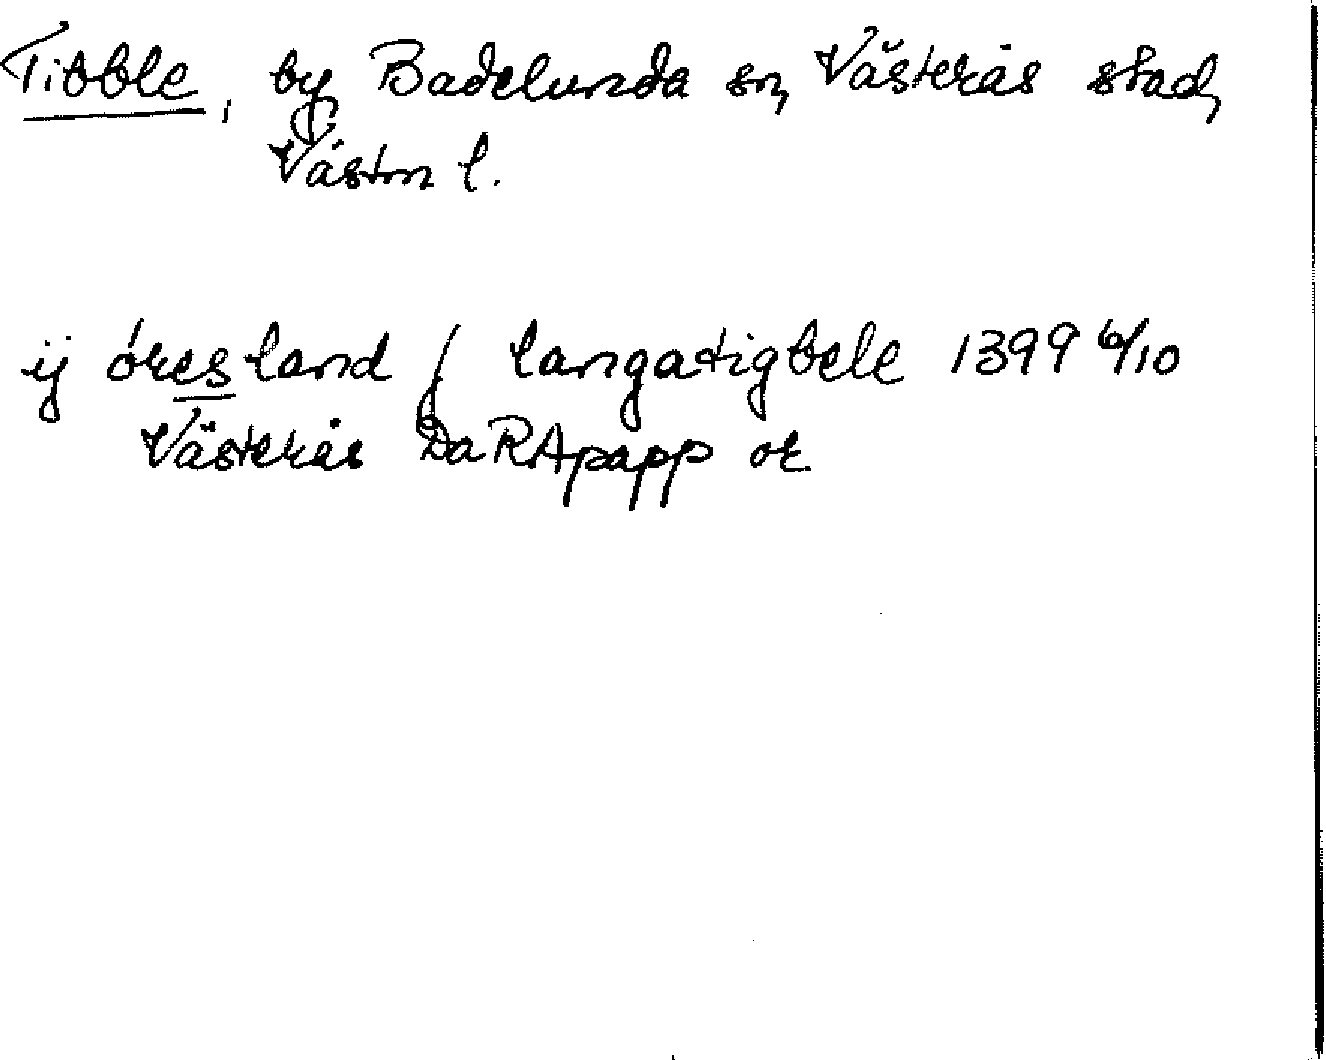 Tibble, by Badelunda sn, Västerås stad,
Västm l.
ij öresland j langatigbele 1399 6/10
Västerås DaRApapp or